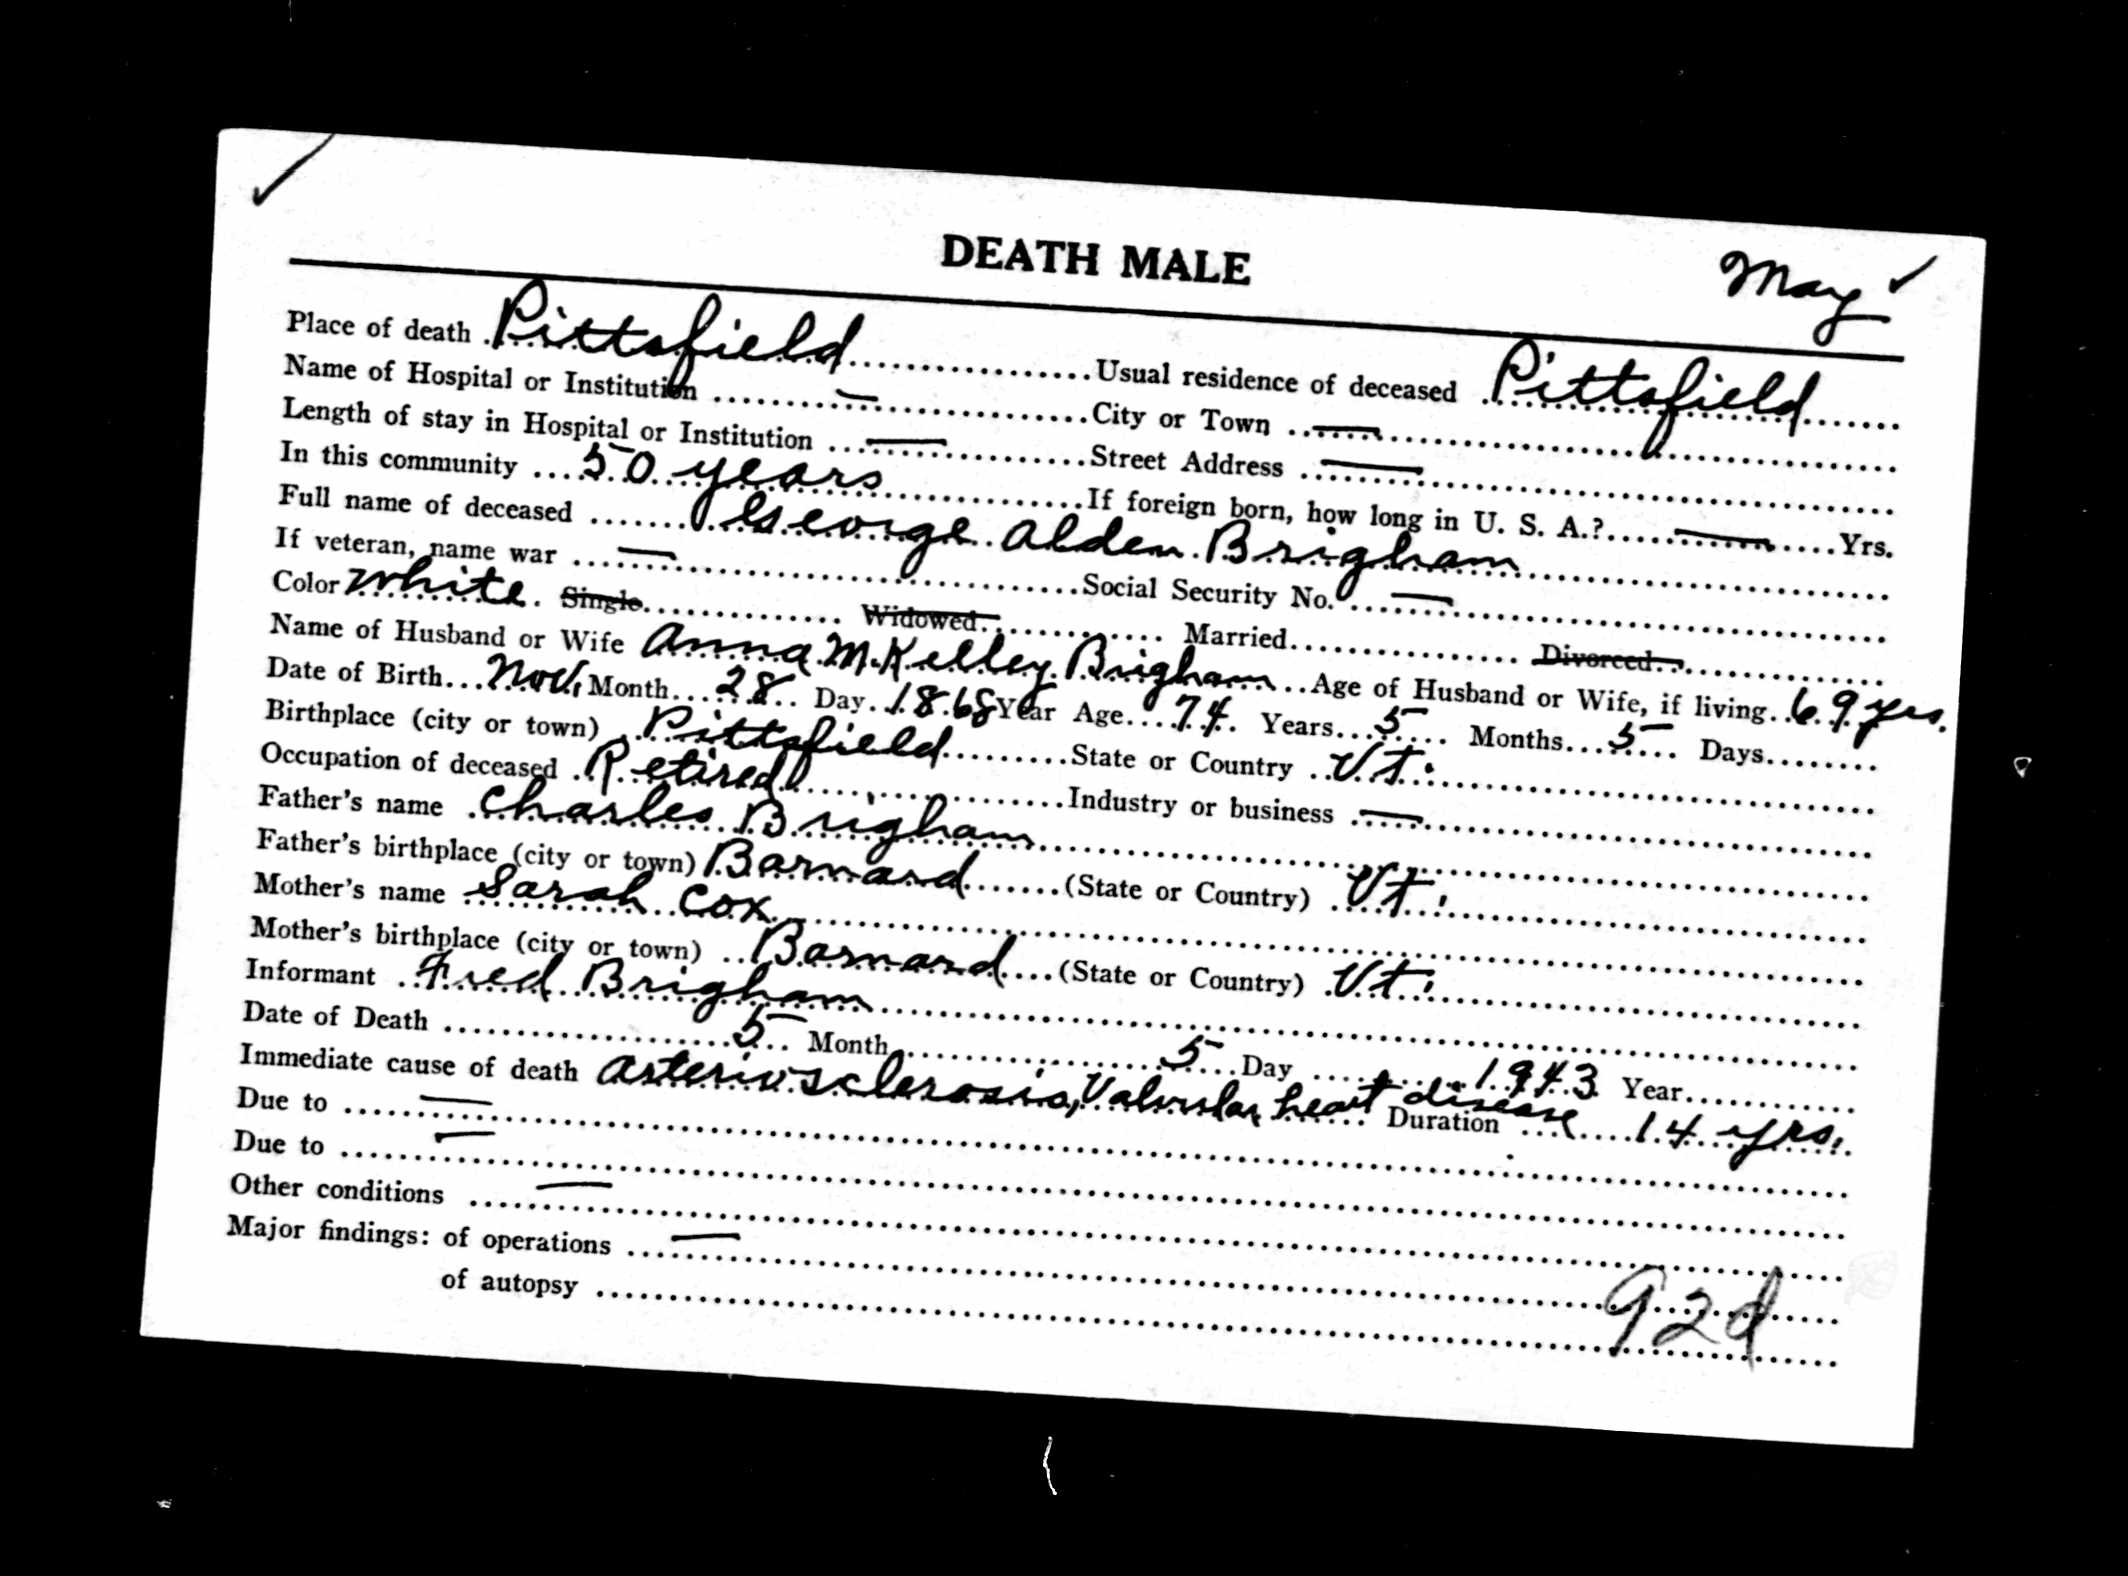 DEATH MALE
May
Place of death Pittsfield Usual residence of deceased Pittsfield
Name of Hospital or Institution — City or Town —
Length of stay in Hospital or Institution — Street Address —
In this community 50 years If foreign born, how long in U. S. A.? — Yrs.
Full name of deceased George Alden Brigham
If veteran, name war — Social Security No. —
Color White Single Widowed Married Divorced
Name of Husband or Wife Anna M. Kelley Brigham Age of Husband or Wife, if living 69 yrs.
Date of Birth Nov. Month 28 Day 1868 Year Age 74 Years 5 Months 5 Days
Birthplace (city or town) Pittsfield State or Country Vt.
Occupation of deceased Retired Industry or business —
Father's name Charles Brigham
Father's birthplace (city or town) Barnard (State or Country) Vt.
Mother's name Sarah Cox
Mother's birthplace (city or town) Barnard (State or Country) Vt.
Informant Fred Brigham
Date of Death 5 Month 5 Day 1943 Year
Immediate cause of death Arteriosclerosis, Valvular heart disease Duration 14 yrs.
Due to —
Due to —
Other conditions —
Major findings: of operations —
of autopsy
92d